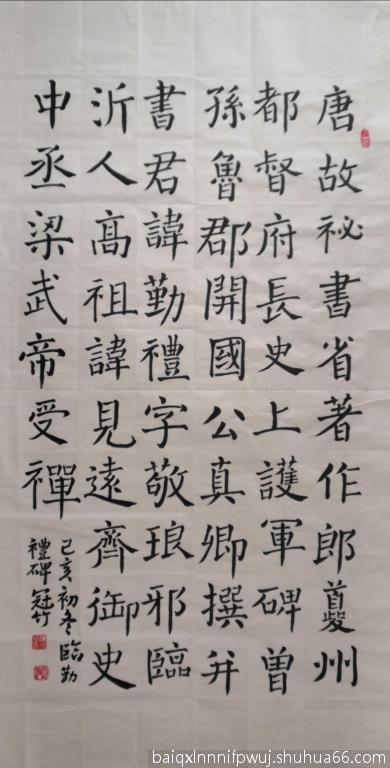 唐故祕書省著作郎夔州
都督府長史上護軍碑曾
孫魯郡開國公真卿撰并
書君諱勤禮字敬琅邪臨
沂人高祖諱見遠齊御史
中丞梁武帝受禪
己亥初冬臨勤
禮碑冠竹
baiqxlnnnifpwuj.shuhua66.com